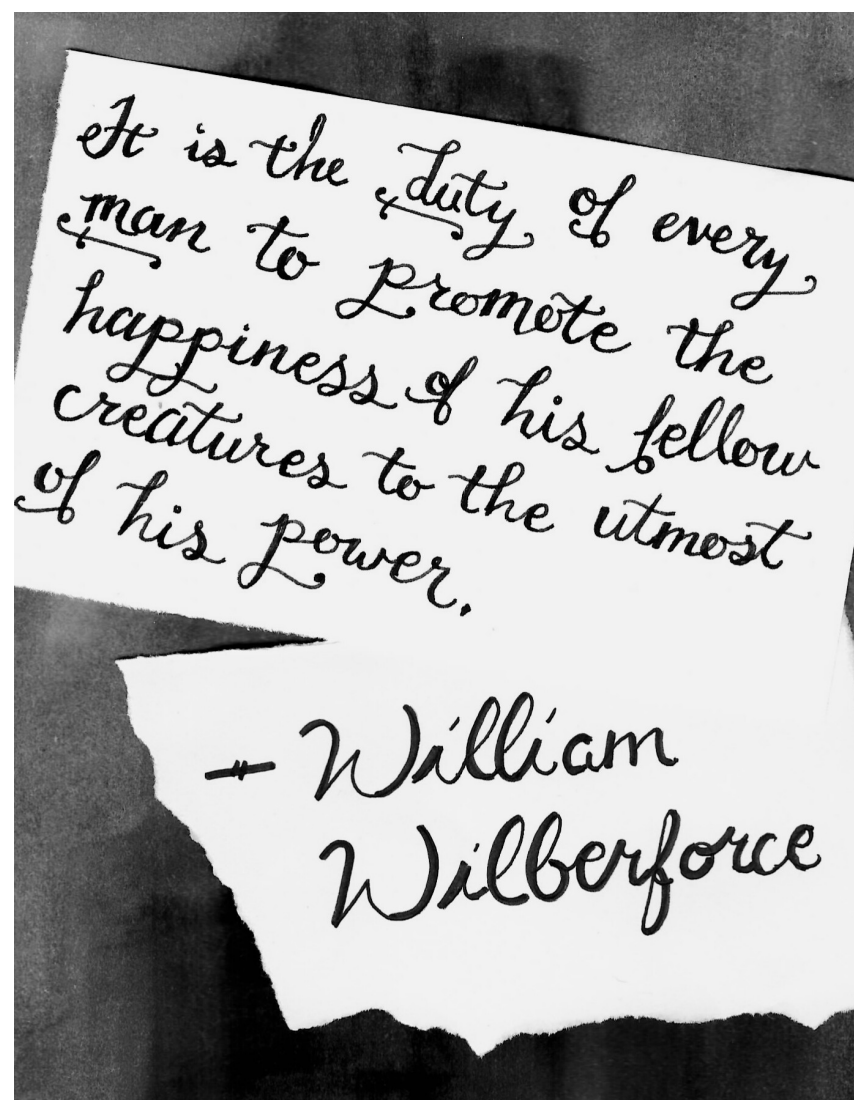 It is the duty of every
man to promote the
happiness of his fellow
creatures to the utmost
of his power.
- William
Wilberforce